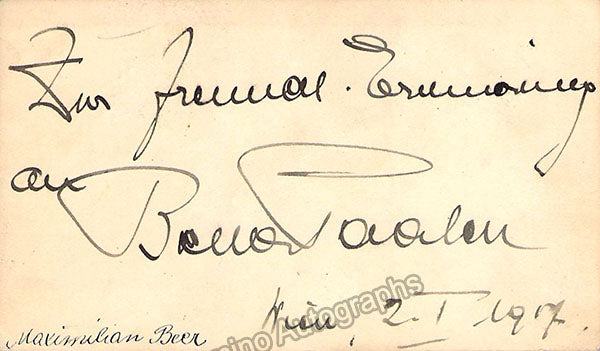 Zur freundl. Erinnerung
an
Bella Paalen
Wien, 2. I 1917.
Maximilian Beer
Tamino Autographs